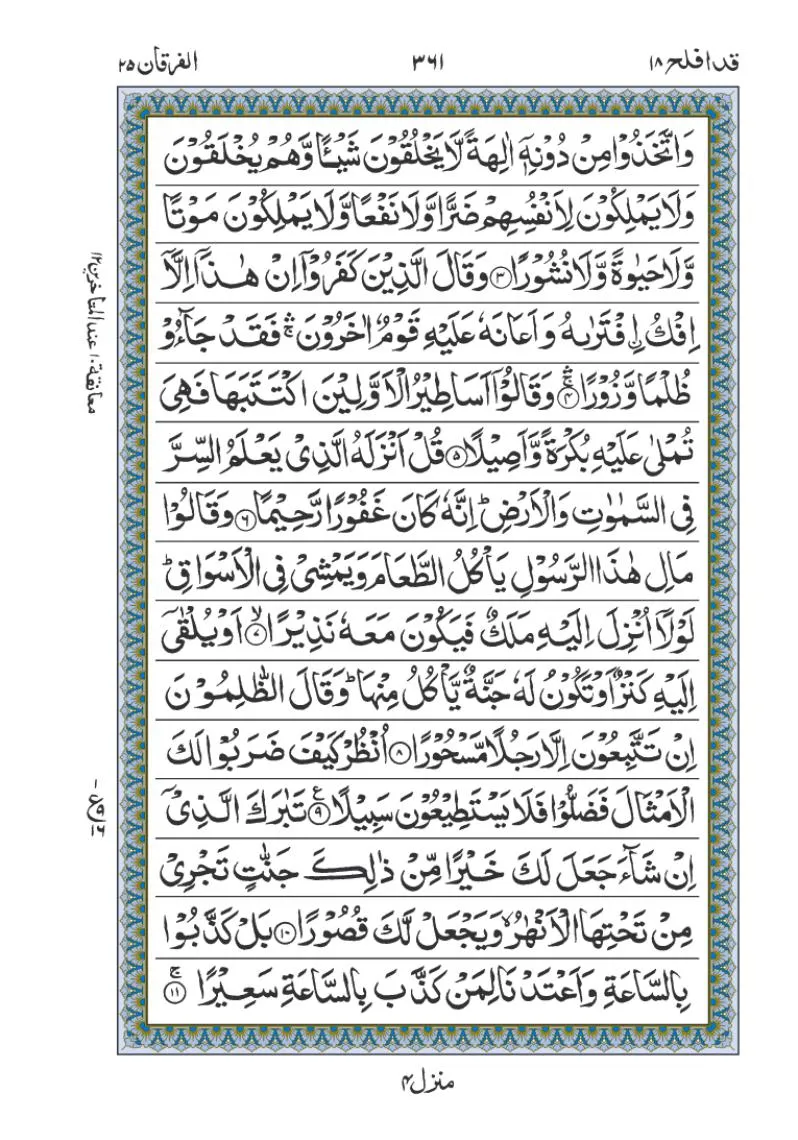 قد افلح ١٨
٣٦١
الفرقان ٢٥
وَاتَّخَذُوْا مِنْ دُوْنِهٖۤ اٰلِهَةً لَّا يَخْلُقُوْنَ شَيْـًٔا وَّهُمْ يُخْلَقُوْنَ
وَلَا يَمْلِكُوْنَ لِاَنْفُسِهِمْ ضَرًّا وَّلَا نَفْعًا وَّلَا يَمْلِكُوْنَ مَوْتًا
وَّلَا حَيٰوةً وَّلَا نُشُوْرًا ﴿٣﴾ وَقَالَ الَّذِيْنَ كَفَرُوْۤا اِنْ هٰذَاۤ اِلَّاۤ
اِفْكُ ۨافْتَرٰىهُ وَاَعَانَهٗ عَلَيْهِ قَوْمٌ اٰخَرُوْنَ ۛۚ فَقَدْ جَآءُوْ
ظُلْمًا وَّزُوْرًا ﴿٤﴾ ۛۚ وَقَالُوْۤا اَسَاطِيْرُ الْاَوَّلِيْنَ اكْتَتَبَهَا فَهِيَ
تُمْلٰى عَلَيْهِ بُكْرَةً وَّاَصِيْلًا ﴿٥﴾ قُلْ اَنْزَلَهُ الَّذِيْ يَعْلَمُ السِّرَّ
فِي السَّمٰوٰتِ وَالْاَرْضِ ؕ اِنَّهٗ كَانَ غَفُوْرًا رَّحِيْمًا ﴿٦﴾ وَقَالُوْا
مَالِ هٰذَا الرَّسُوْلِ يَاْكُلُ الطَّعَامَ وَيَمْشِيْ فِي الْاَسْوَاقِ ؕ
لَوْلَاۤ اُنْزِلَ اِلَيْهِ مَلَكٌ فَيَكُوْنَ مَعَهٗ نَذِيْرًا ﴿٧﴾ ۙ اَوْ يُلْقٰۤى
اِلَيْهِ كَنْزٌ اَوْ تَكُوْنُ لَهٗ جَنَّةٌ يَّاْكُلُ مِنْهَا ؕ وَقَالَ الظّٰلِمُوْنَ
اِنْ تَتَّبِعُوْنَ اِلَّا رَجُلًا مَّسْحُوْرًا ﴿٨﴾ اُنْظُرْ كَيْفَ ضَرَبُوْا لَكَ
الْاَمْثَالَ فَضَلُّوْا فَلَا يَسْتَطِيْعُوْنَ سَبِيْلًا ﴿٩﴾ ع تَبٰرَكَ الَّذِيْۤ
اِنْ شَآءَ جَعَلَ لَكَ خَيْرًا مِّنْ ذٰلِكَ جَنّٰتٍ تَجْرِيْ
مِنْ تَحْتِهَا الْاَنْهٰرُ ۙ وَيَجْعَلْ لَّكَ قُصُوْرًا ﴿١٠﴾ بَلْ كَذَّبُوْا
بِالسَّاعَةِ وَاَعْتَدْنَا لِمَنْ كَذَّبَ بِالسَّاعَةِ سَعِيْرًا ﴿١١﴾ ۚ
معانقة ١٠ عند المتاخرين ١٢
منزل ٤